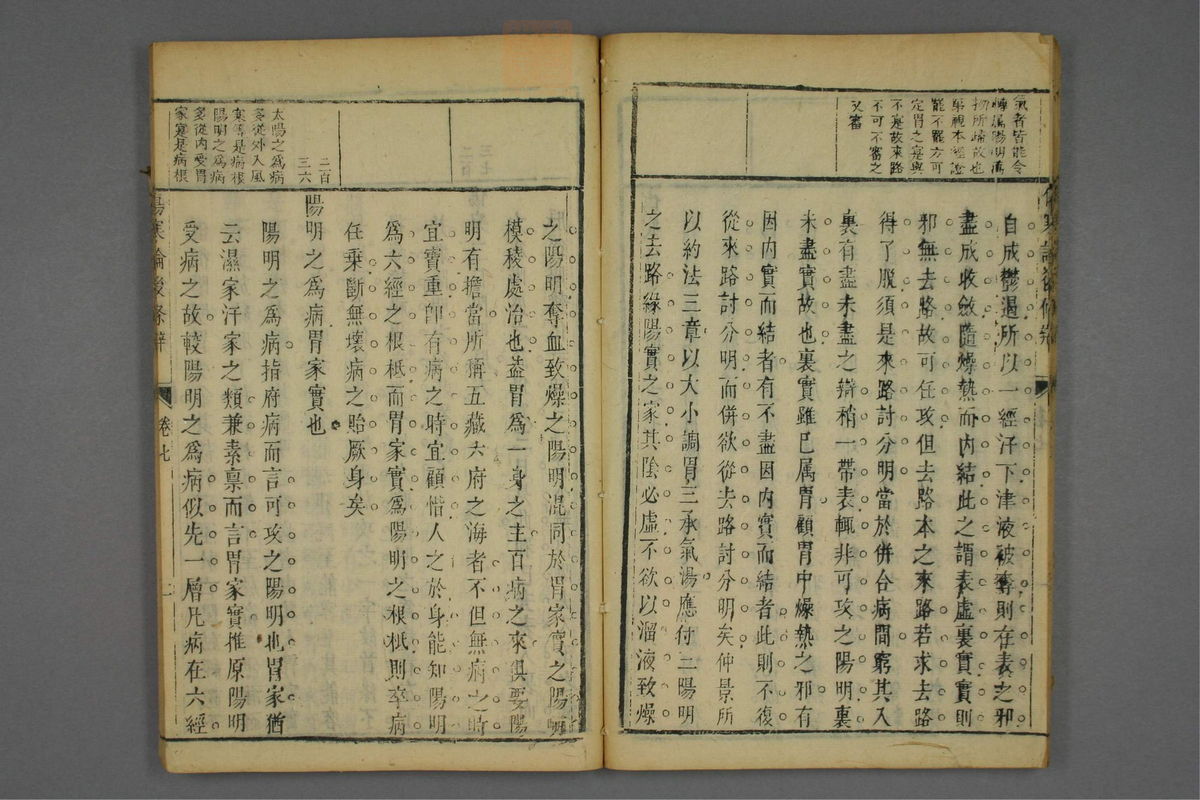 氣者皆能令
轉屬陽明萬
物所歸故也
第視本經證
罷不罷方可
定胃之寔與
不寔故來路
不可不審之
又審
自成鬱遏所以一經汗下津液被奪則存表之邪
盡成收斂隨燥熱而內結此之謂表虛裏實實則
邪無去路故可任攻但去路本之來路若求去路
得了脫須是來路討分明當於併合病間窮其入
裏有盡未盡之辯稍一帶表輒非可攻之陽明裏
未盡實故也裏實雖已属胃顧胃中燥熱之邪有
因內實而結者有不盡因內實而結者此則不復
從來路討分明而併欲從去路討分明矣仲景所
以約法三章以大小調胃三承氣湯應付三陽明
之去路緣陽實之家其陰必虛不欲以溜液致燥
之陽明奪血致燥之陽明混同於胃家實之陽明
模稜處治也葢胃為一身之主百病之來俱要陽
明有擔當所稱五藏六府之海者不但無病之時
宜寶重卽有病之時宜顧惜人之於身能知陽明
爲六經之根柢而胃家實爲陽明之根柢則卒病
任乗斷無壞病之貽厥身矣
二百
三六
陽明之爲病胃家實也
太陽之爲病
多從外入風
寒傷是病根
陽明之爲病
多從內受胃
家寔是病根
陽明之爲病指府病而言可攻之陽明也胃家猶
云濕家汗家之類兼素禀而言胃家實推原陽明
受病之故較陽明之爲病似先一層凡病在六經
傷寒論後條辯
卷七
二